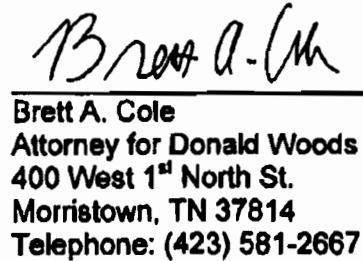 Brett A. Cole
Brett A. Cole
Attorney for Donald Woods
400 West 1st North St.
Morristown, TN 37814
Telephone: (423) 581-2667